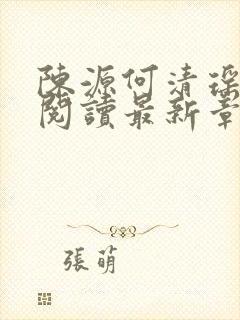 陳源何清瑤
閱讀最新章
張萌